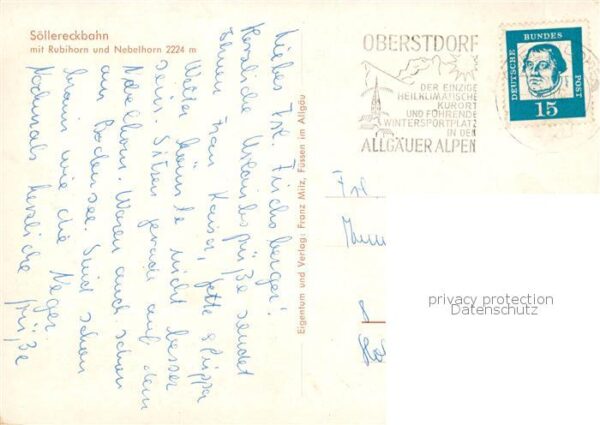 Söllereckbahn
mit Rubihorn und Nebelhorn 2224 m
Liebes Frl. Fischoberger!
Herzliche Urlaubsgrüße sendet
Ihnen Frau Kaiser, Jette &
Wetter könnte nicht besser
sein. Sitzen gerade auf dem
Nebelhorn. Waren auch schon
am Bodensee. Sind schon
braun wie die Neger
Nochmals herzliche Grüße
Eigentum und Verlag: Franz Milz, Füssen im Allgäu
OBERSTDORF
DER EINZIGE
HEILKLIMATISCHE
KURORT
UND FÜHRENDE
WINTERSPORTPLATZ
IN DEN
ALLGÄUER ALPEN
DEUTSCHE BUNDES POST
15
Frl.
privacy protection
Datenschutz